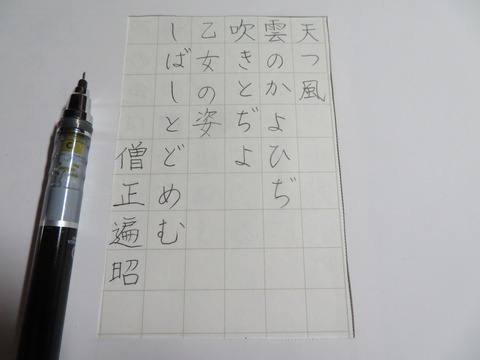 天つ風
雲のかよひぢ
吹きとぢよ
乙女の姿
しばしとどめむ
僧正遍昭